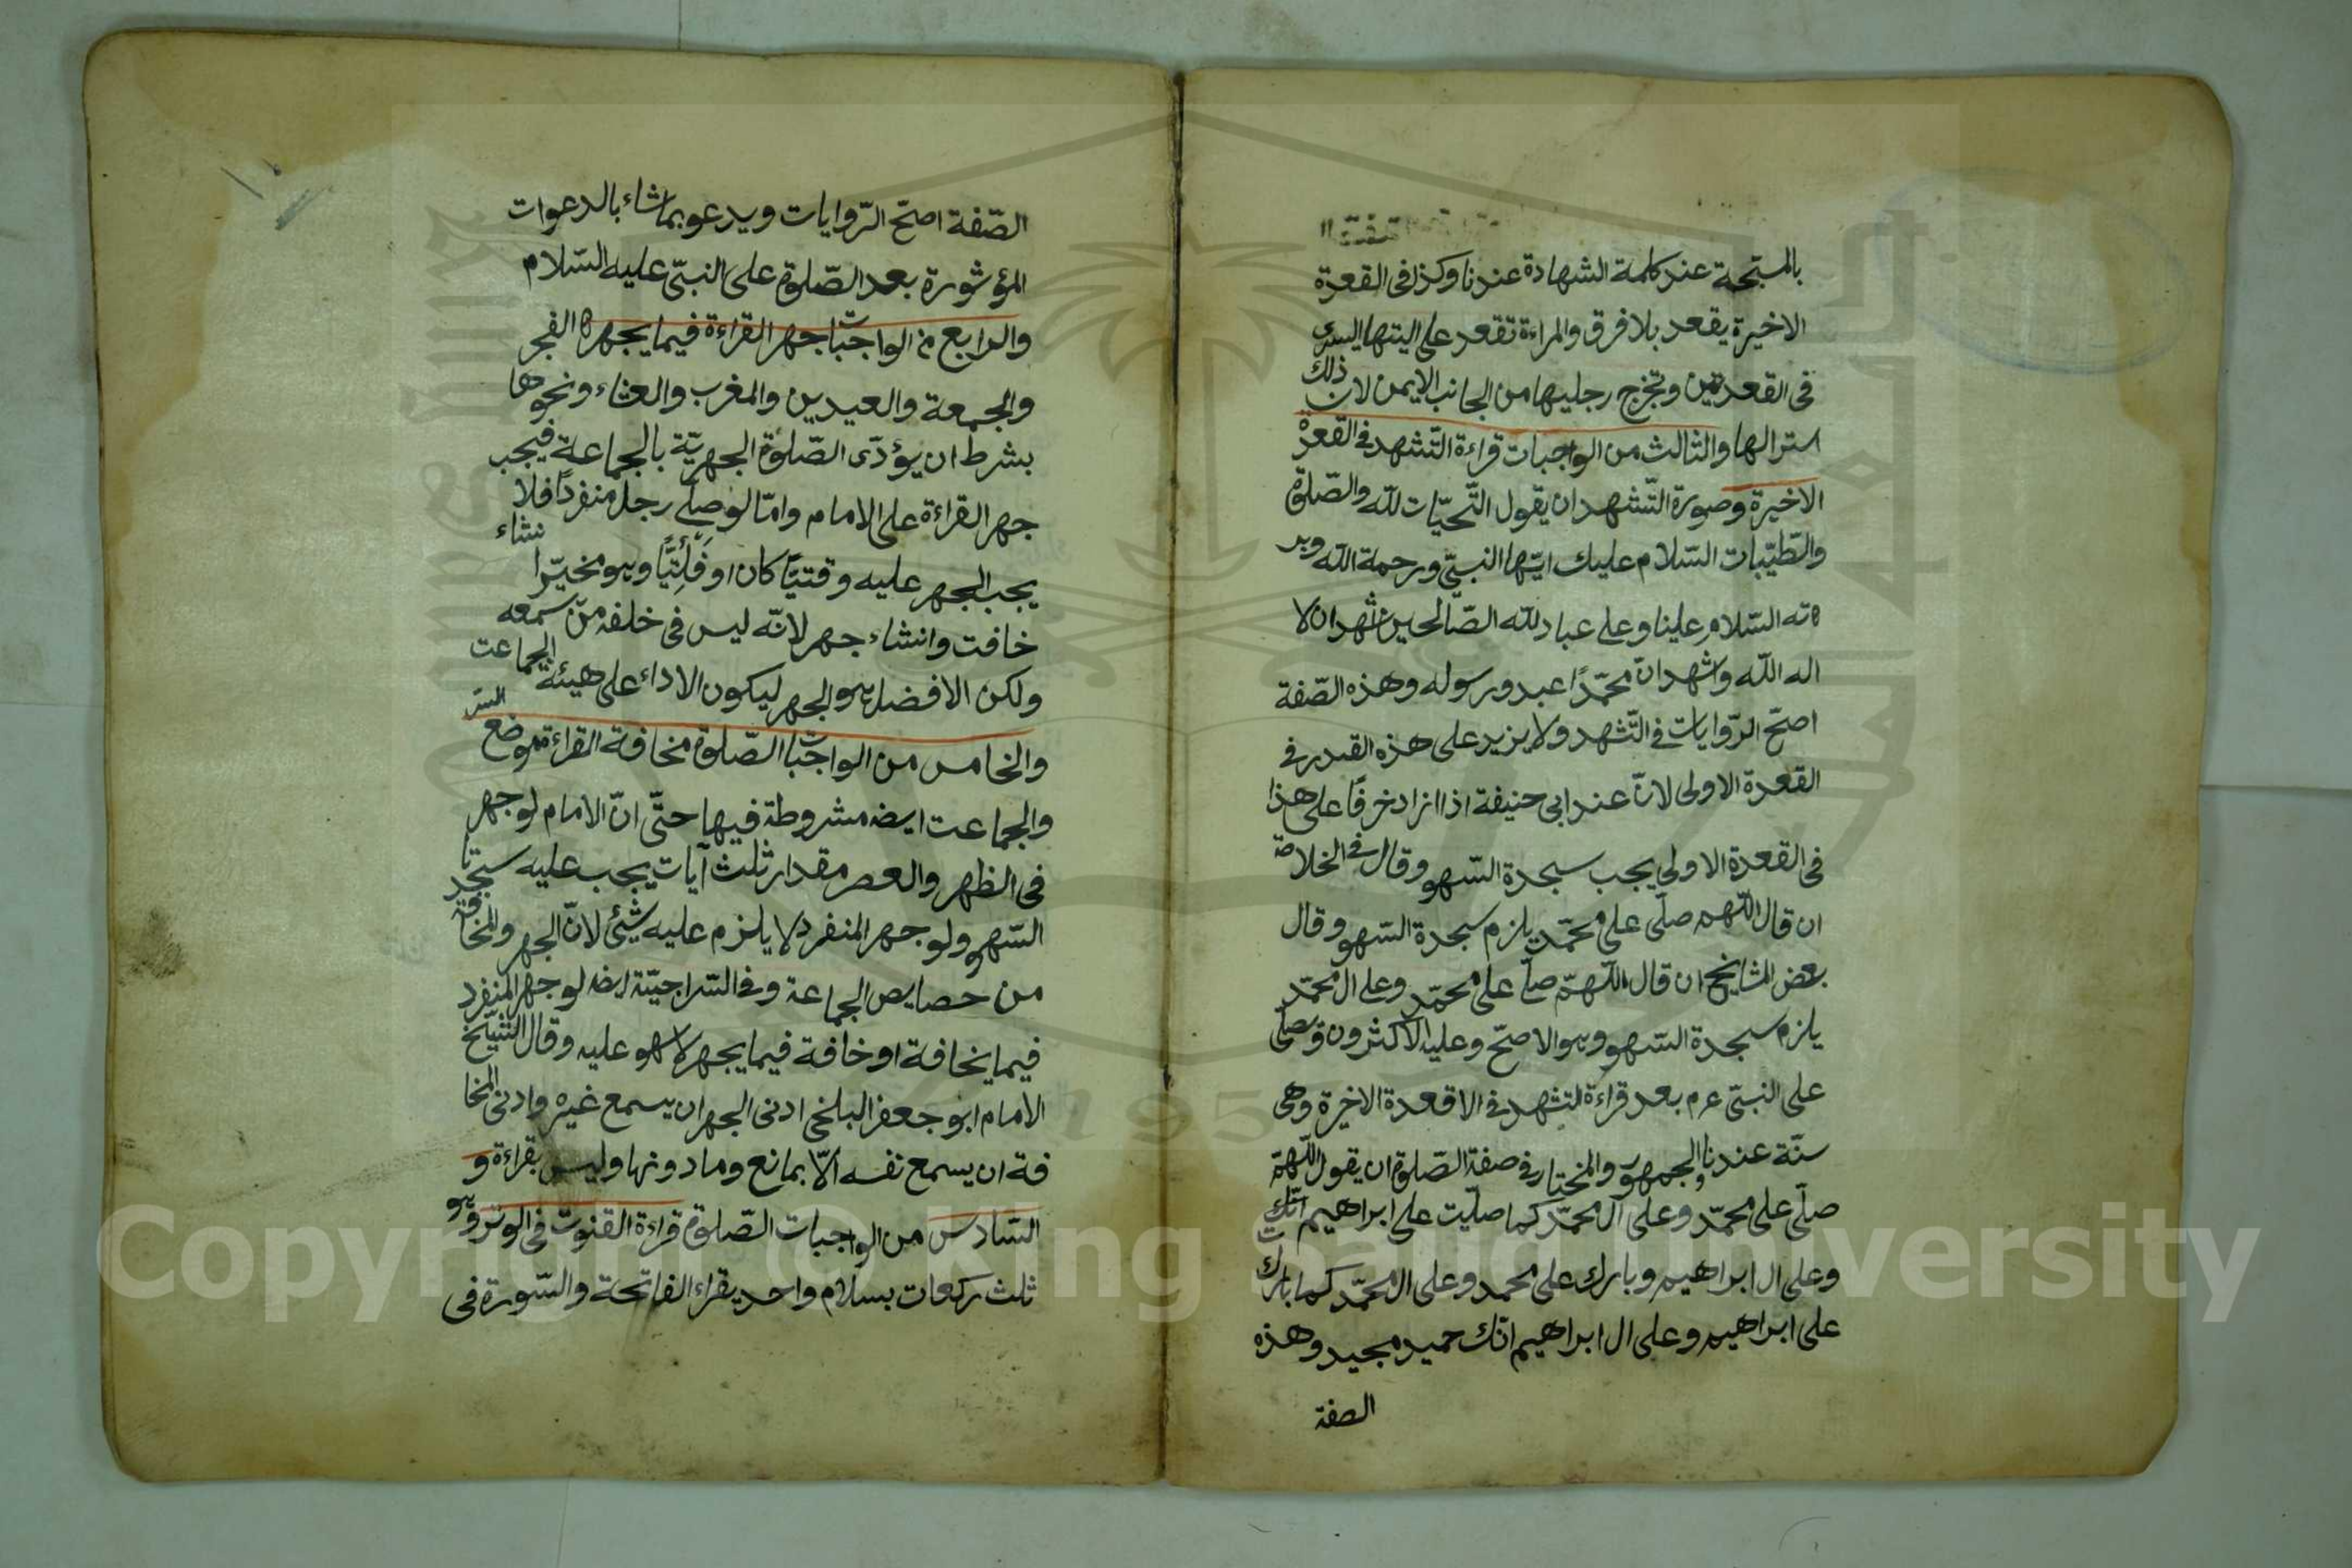 بالمسبّحة عند كلمة الشهادة عندنا وكذا فى القعدة
الاخيرة يقعد بلا فرق والمراءة تقعد على اليتها اليسرى
فى القعدتين وتخرج رجليها من الجانب الايمن لان ذلك
استر لها والثالث من الواجبات قراءة التّشهد فى القعدة
الاخيرة وصورة التّشهد ان يقول التّحيّات للّه والصّلوة
والطّيّبات السّلام عليك ايّها النبىّ ورحمة اللّه وبر
كاته السّلام علينا وعلى عباد للّه الصّالحين اشهد ان لا
اله اللّه واشهد انّ محمّدًا عبد ورسوله وهذه الصّفة
اصحّ الرّوايات فى التّشهد ولا يزيد على هذه القدر فى
القعدة الاولى لانّ عند ابى حنيفة اذا ازاد حرفًا على هذا
فى القعدة الاولى يجب سجدة السّهو وقال فى الخلاصة
ان قال اللّهم صلّى على محمّد يلزم سجدة السّهو وقال
بعض المشايخ ان قال اللّهمّ صلّ على محمّد وعلى ال محمّد
يلزم سجدة السّهو وهو الاصحّ وعليه الاكثرون ويصلّى
على النبىّ عرم بعد قراءة التشهد فى الاقعدة الاخيرة وهى
سنّة عندنا والجمهور والمختار فى صفة الصّلوة ان يقول اللّهمّ
صلّى على محمّد وعلى آل محمّد كما صلّيت على ابراهيم انّك
وعلى ال ابراهيم وبارك على محمد وعلى ال محمّد كما باركت
على ابراهيم وعلى ال ابراهيم انّك حميد مجيد وهذه
الصفة
الصّفة اصحّ الرّوايات ويدعو بما شاء بالدعوات
المؤثورة بعد الصّلوة على النبىّ عليه السّلام
والرابع من الواجبات جهر القراءة فيما يجهر ه الفجر
والجمعة والعيدين والمغرب والعشاء ونحوها
بشرط ان يؤدّى الصّلوة الجهريّة بالجماعة فيجب
جهر القراءة على الامام وامّا لو صلّى رجل منفردًا فلا
يجب الجهر عليه وقتيًّا كان او فَائِتيًّا وهو مخيّر انشاء
خافت وانشاء جهر لانّه ليس فى خلفه من سمعه
ولكن الافضل هو الجهر ليكون الاداء على هيئة الجماعت
والخامس من الواجبات الصّلوة مخافة القراءة موضع السّر
والجماعت ايضه مشروطة فيها حتّى انّ الامام لو جهر
فى الظهر والعصر مقدار ثلث آيات يجب عليه سجدتا
السّهو ولو جهر المنفرد لا يلزم عليه شيئ لانّ الجهر والمخافة
من خصايص الجماعة وفى السّراجيّة ايضه لو جهر المنفرد
فيما يخافة او خافة فيما يجهر لا سهو عليه وقال الشّيخ
الامام ابو جعفر البلخى ادنى الجهر ان يسمع غيره وادنى المخا
فة ان يسمع نفسه الّا بمانع وما دونها وليس بقراءة و
السّادس من الواجبات الصّلوة قراءة القنوت فى الوتر وهو
ثلث ركعات بسلام واحد يقراء الفاتحة والسّورة فى
Copyright © King Saud University
1957